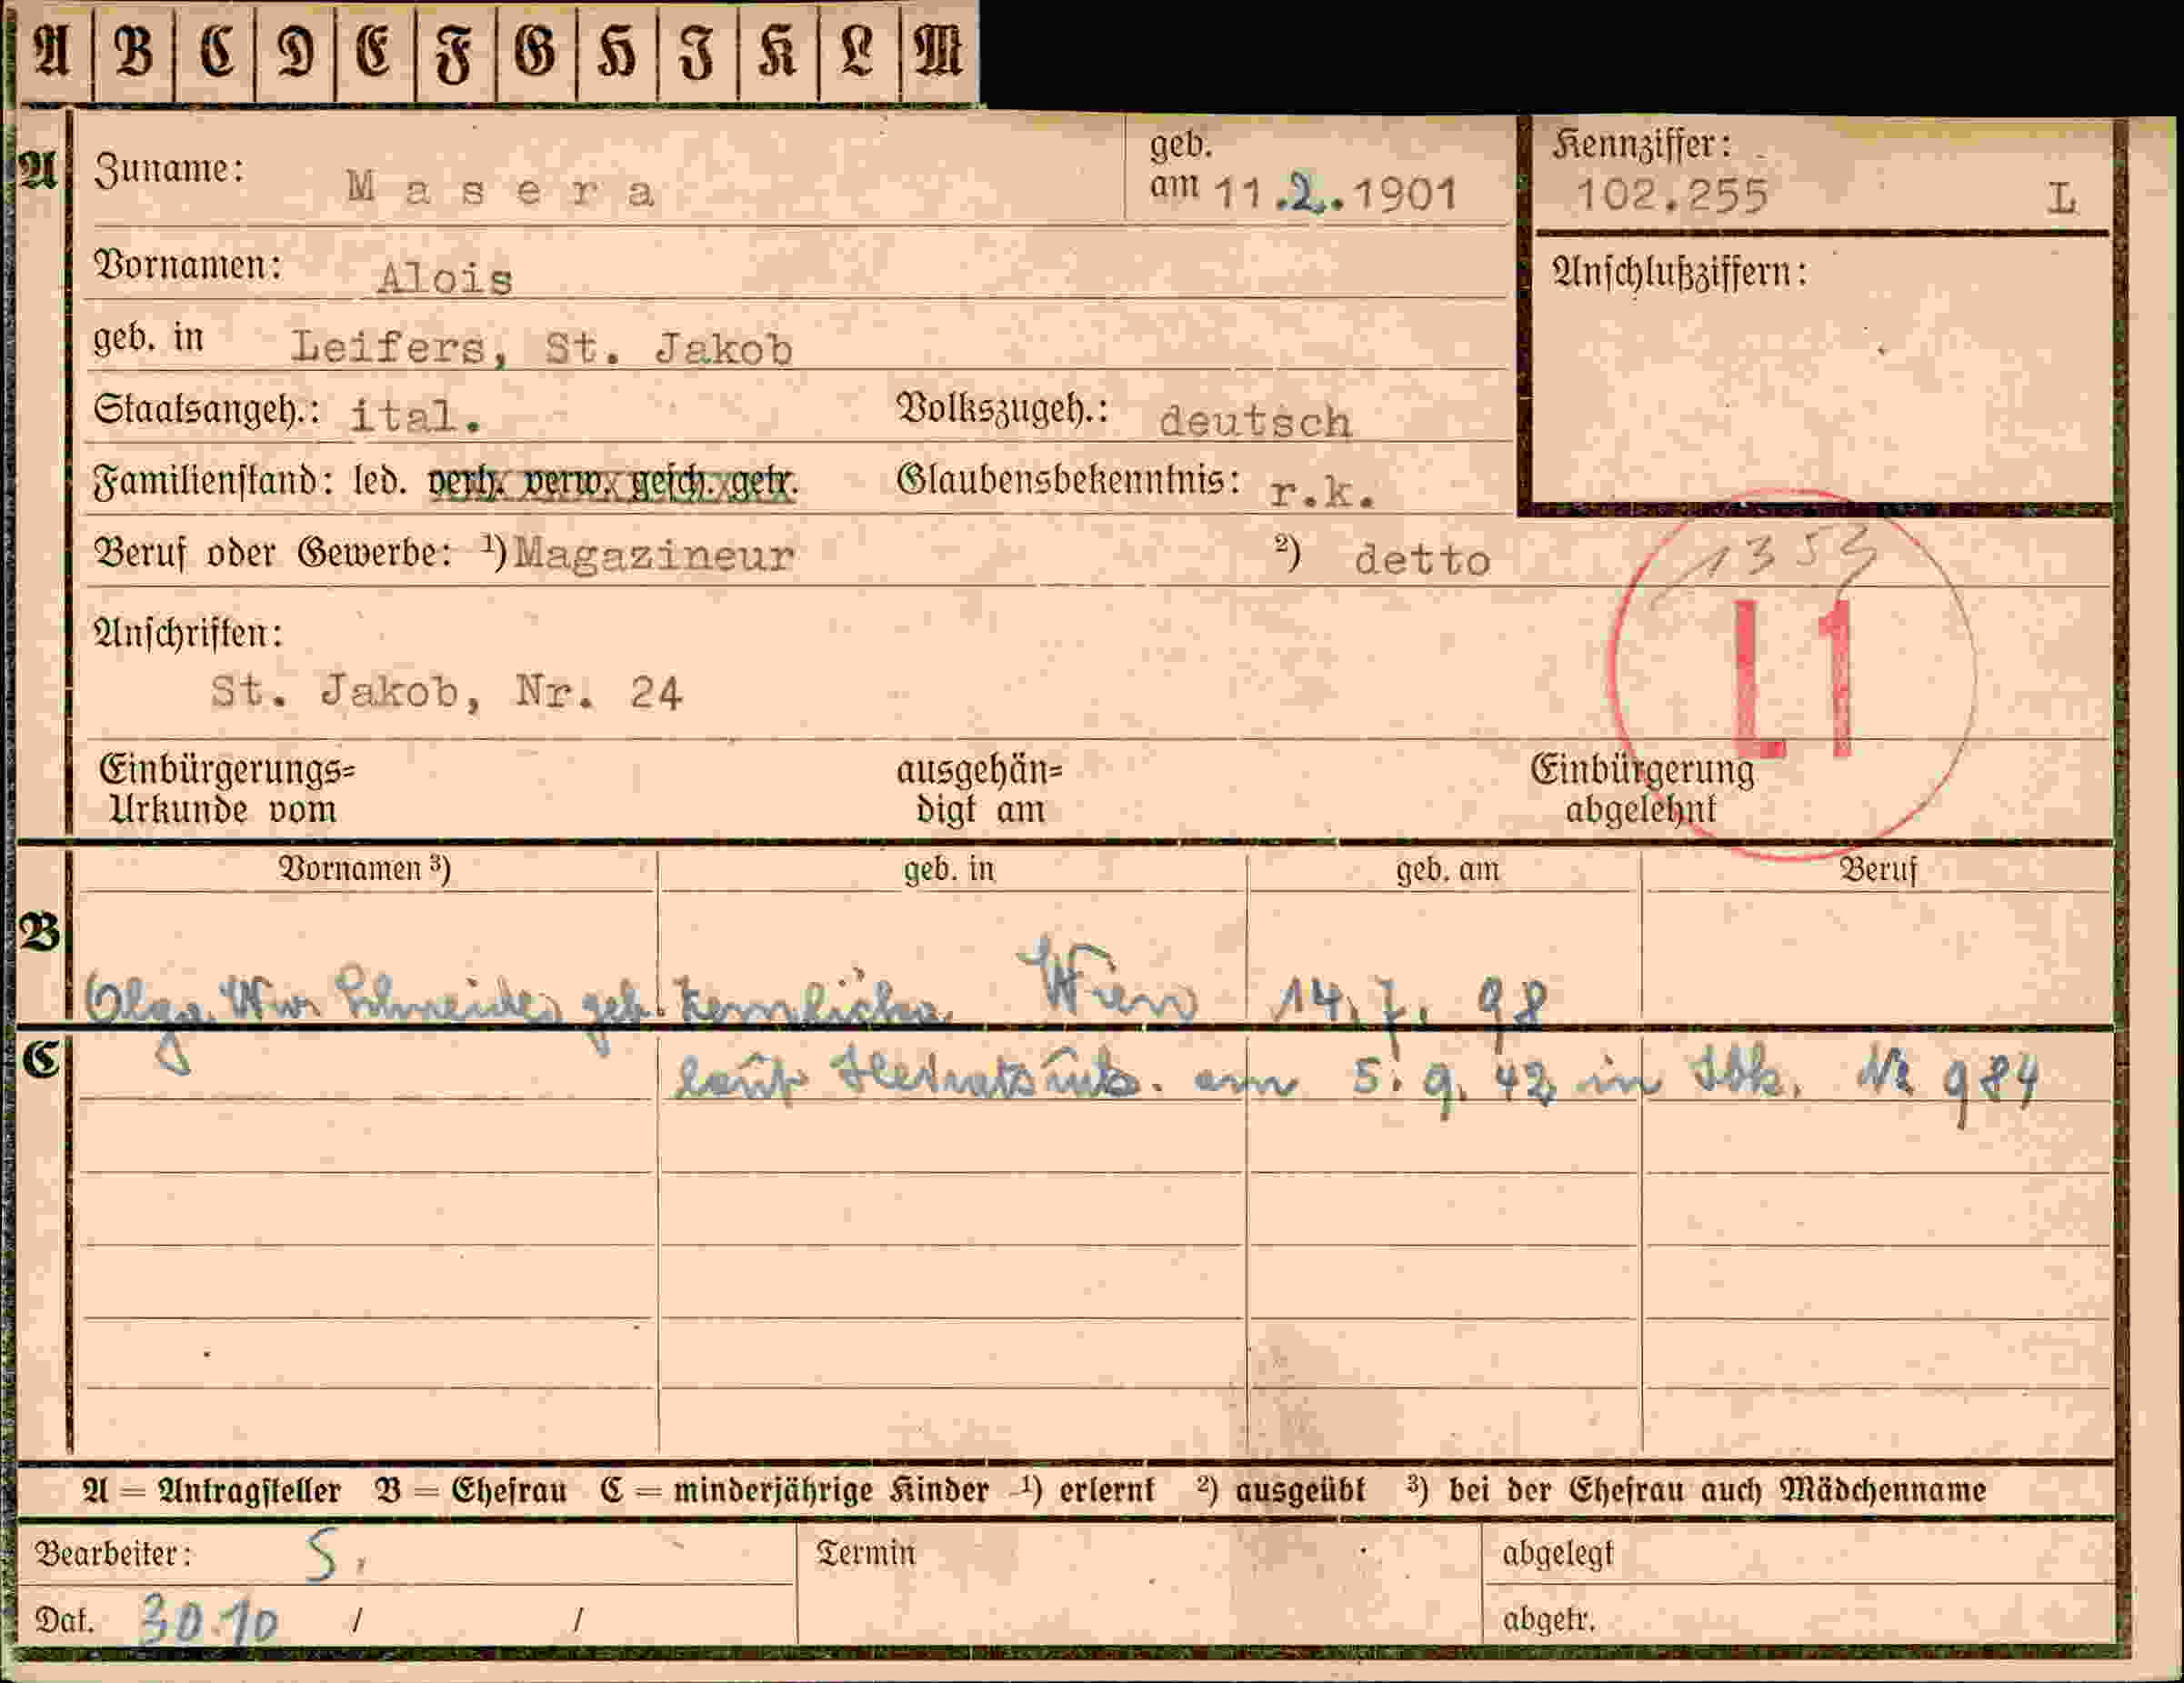 A B C D E F G H I K L M
A Zuname: Masera geb. am 11.2.1901 Kennziffer: 102.255 L
Vornamen: Alois Anschlußziffern:
geb. in Leifers, St. Jakob
Staatsangeh.: ital. Volkszugeh.: deutsch
Familienstand: led. verh. verw. gesch. getr. Glaubensbekenntnis: r.k.
Beruf oder Gewerbe: ¹) Magazineur ²) detto 1353
Anschriften: L1
St. Jakob, Nr. 24
Einbürgerungs= ausgehän= Einbürgerung
Urkunde vom digt am abgelehnt
Vornamen ³) geb. in geb. am Beruf
B
Olga Wwe Schneider geb. Wien 14.7.98
C laut Heiratsurk. am 5.9.42 in Ibk. Nr 984
A = Antragsteller B = Ehefrau C = minderjährige Kinder ¹) erlernt ²) ausgeübt ³) bei der Ehefrau auch Mädchenname
Bearbeiter: S. Termin abgelegt
Dat. 30.10 / / abgetr.